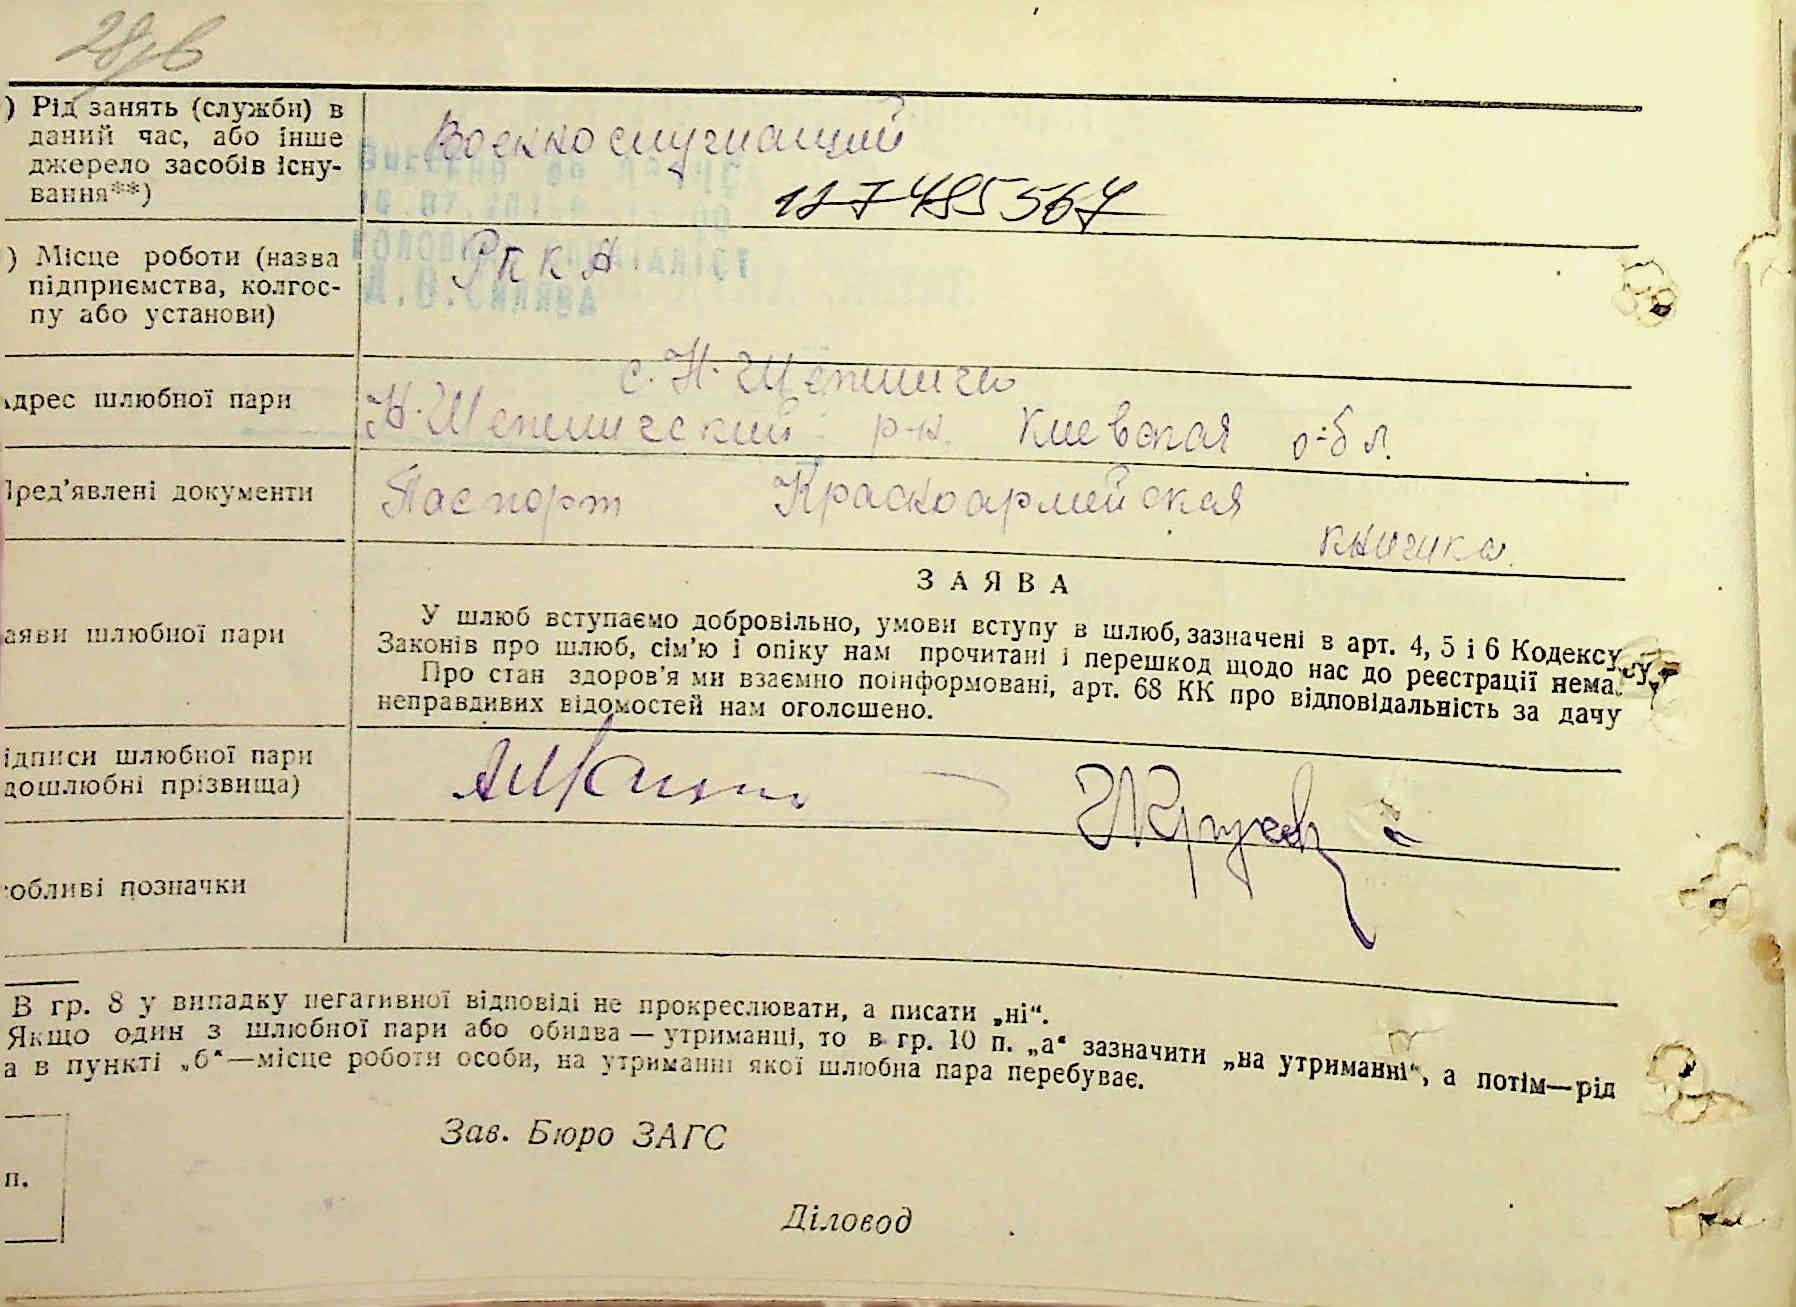 28зв
) Рід занять (служби) в
даний час, або інше
джерело засобів існу-
вання**)
Военнослужащий
) Місце роботи (назва
підприємства, колгос-
пу або установи)
РККА
адрес шлюбної пари
с. Н. Шепеличи
Н. Шепеличский р-н. Киевская обл.
Пред'явлені документи
Паспорт Красноармейская
книжка.
аяви шлюбної пари
ЗАЯВА
У шлюб вступаємо добровільно, умови вступу в шлюб, зазначені в арт. 4, 5 і 6 Кодексу
Законів про шлюб, сім'ю і опіку нам прочитані і перешкод щодо нас до реєстрації нема.
Про стан здоров'я ми взаємно поінформовані, арт. 68 КК про відповідальність за дачу
неправдивих відомостей нам оголошено.
ідписи шлюбної пари
дошлюбні прізвища)
обливі позначки
В гр. 8 у випадку негативної відповіді не прокреслювати, а писати „ні“.
Якщо один з шлюбної пари або обидва — утриманці, то в гр. 10 п. „а“ зазначити „на утриманні“, а потім—рід
а в пункті „б“—місце роботи особи, на утриманні якої шлюбна пара перебуває.
Зав. Бюро ЗАГС
п.
Діловод